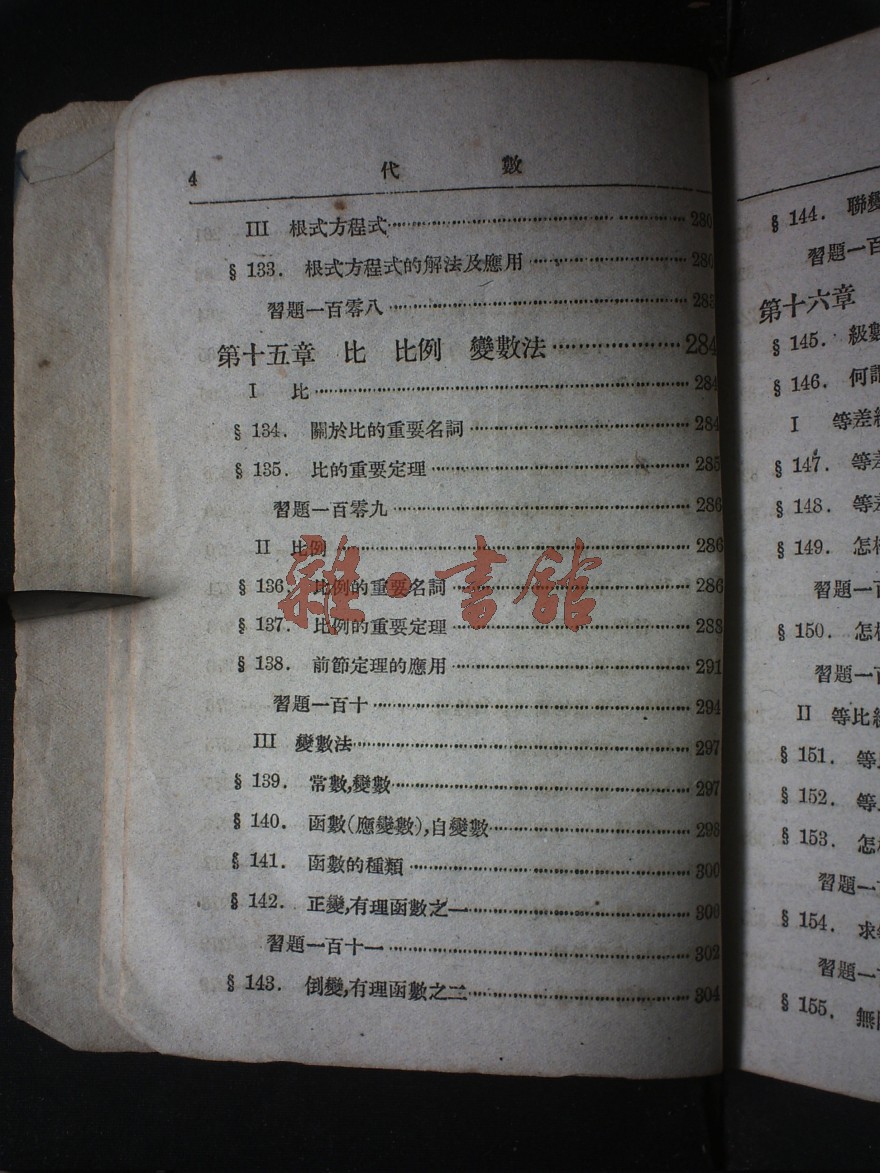 4 代 數
III 根式方程式 280
§ 133. 根式方程式的解法及應用 280
習題一百零八 283
第十五章 比 比例 變數法 284
I 比 284
§ 134. 關於比的重要名詞 284
§ 135. 比的重要定理 285
習題一百零九 286
II 比例 286
§ 136. 比例的重要名詞 286
§ 137. 比例的重要定理 288
§ 138. 前節定理的應用 291
習題一百十 294
III 變數法 297
§ 139. 常數,變數 297
§ 140. 函數(應變數),自變數 298
§ 141. 函數的種類 300
§ 142. 正變,有理函數之一 300
習題一百十一 302
§ 143. 倒變,有理函數之二 304
雜·書館
§ 144. 聯變
習題一百
第十六章
§ 145. 級數
§ 146. 何謂
I 等差級
§ 147. 等差
§ 148. 等差
§ 149. 怎樣
習題一百
§ 150. 怎樣
習題一百
II 等比級
§ 151. 等
§ 152. 等
§ 153. 怎
習題一
§ 154. 求
習題一
§ 155. 無